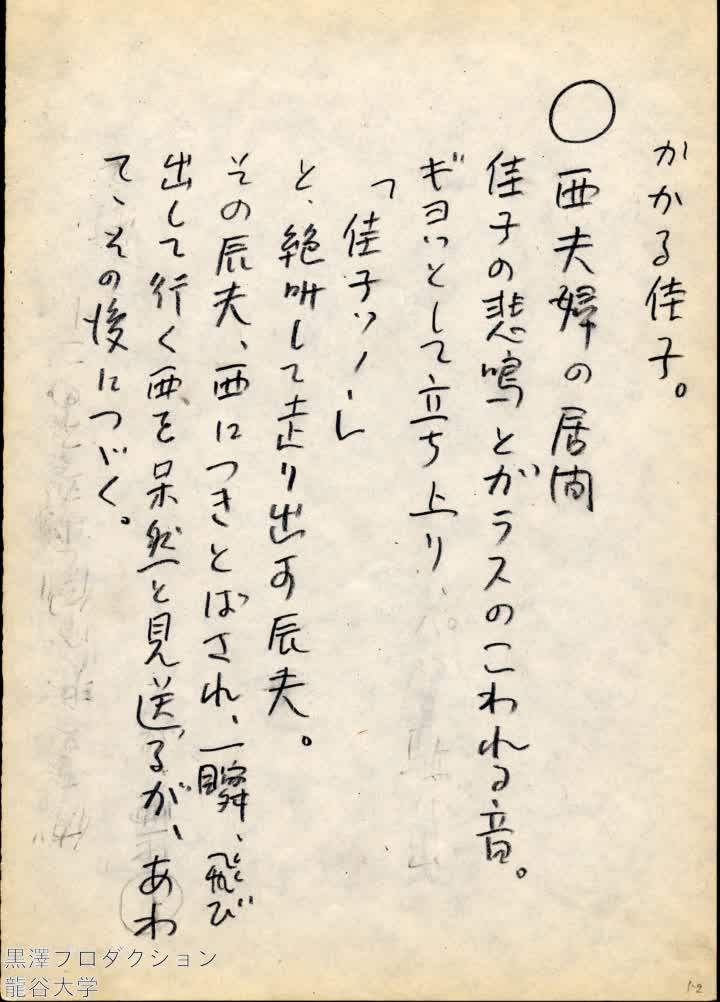 かかる佳子。
○西夫婦の居間
佳子の悲鳴とガラスのこわれる音。
ギョッとして立ち上り、
「佳子ッ！」
と、絶叫して走り出す辰夫。
その辰夫、西につきとばされ、一瞬、飛び
出して行く西を呆然と見送るが、あわ
て、その後につゞく。
黒澤プロダクション
龍谷大学
1-2